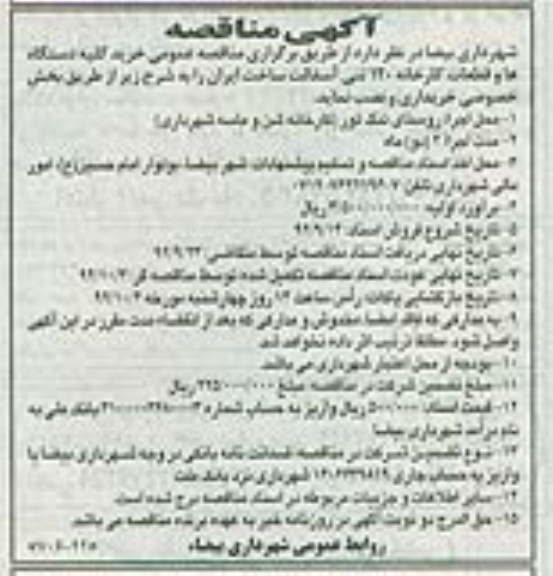 آگهی مناقصه
شهرداری بیضا در نظر دارد از طریق برگزاری مناقصه عمومی خرید کلیه دستگاه
ها و قطعات کارخانه ۱۲۰ تنی آسفالت ساخت ایران را به شرح زیر از طریق بخش
خصوصی خریداری و نصب نماید.
۱- محل اجرا: روستای تنگ تور (کارخانه شن و ماسه شهرداری)
۲- مدت اجرا: ۲ (دو) ماه
۳- محل اخذ اسناد مناقصه و تسلیم پیشنهادات: شهر بیضا، بولوار امام حسین(ع) امور
مالی شهرداری تلفن:
۴- برآورد اولیه: ریال
۵- تاریخ شروع فروش اسناد: ۹۲/۹/۱۲
۶- تاریخ نهایی دریافت اسناد مناقصه توسط متقاضی: ۹۲/۹/۲۳
۷- تاریخ نهایی عودت اسناد مناقصه تکمیل شده توسط مناقصه گر: ۹۲/۱۰/۳
۸- تاریخ بازگشایی پاکات: رأس ساعت ۱۲ روز چهارشنبه مورخه ۹۲/۱۰/۴
۹- به مدارکی که فاقد امضا، مخدوش و مدارکی که بعد از انقضاء مدت مقرر در این آگهی
واصل شود مطلقا ترتیب اثر داده نخواهد شد.
۱۰- بودجه از محل اعتبار شهرداری می باشد.
۱۱- مبلغ تضمین شرکت در مناقصه: مبلغ ریال
۱۲- قیمت اسناد: ۵۰۰/۰۰۰ ریال واریز به حساب شماره بانک ملی به
نام درآمد شهرداری بیضا
۱۳- نوع تضمین شرکت در مناقصه: ضمانت نامه بانکی در وجه شهرداری بیضا یا
واریز به حساب جاری شهرداری نزد بانک ملت
۱۴- سایر اطلاعات و جزییات مربوطه در اسناد مناقصه درج شده است.
۱۵- حق الدرج دو نوبت آگهی در روزنامه خبر به عهده برنده مناقصه می باشد.
روابط عمومی شهرداری بیضاء